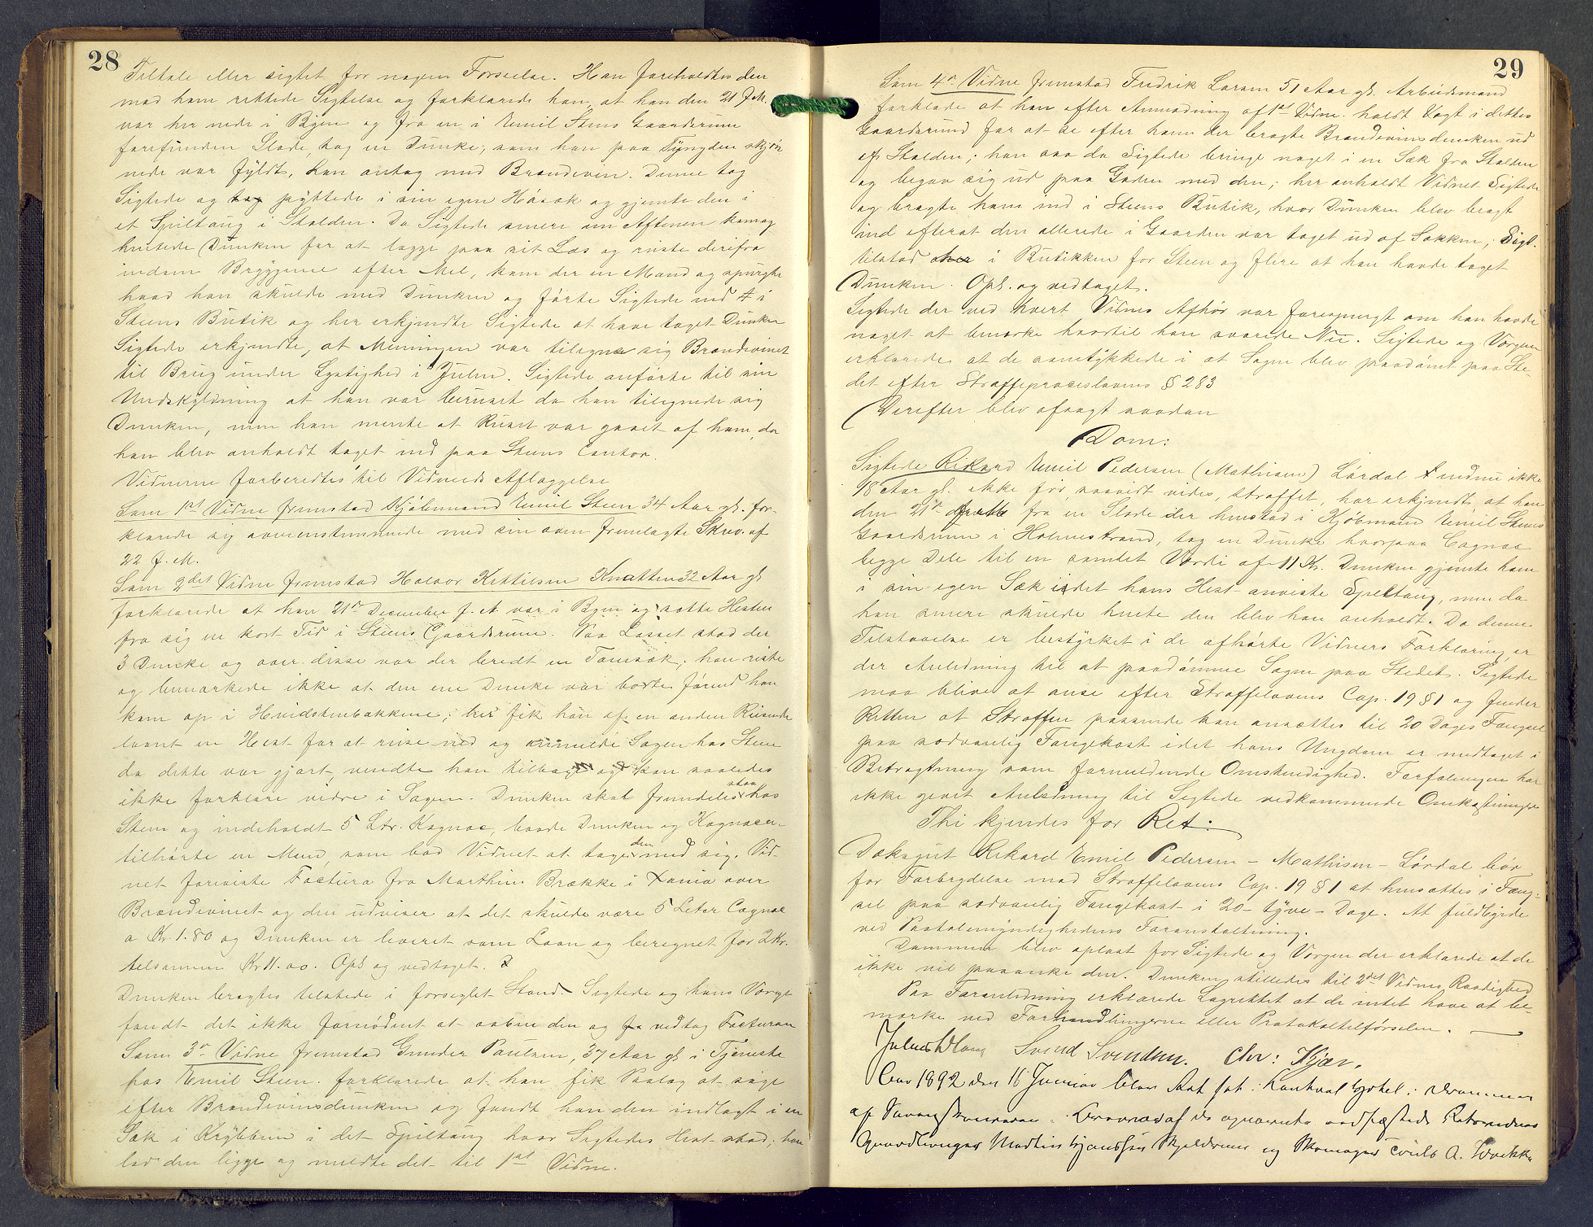 28
Tiltale eller sigtet for nogen Forseelse. Han foreholdtes den
mod ham rettede Sigtelse og forklarede han, at han den 21 f.M.
var her nede i Byen og fra en i Emil Steens Gaardsrum
forefunden Slæde tog en Dunke, som han paa Tyngden skjøn
nede var fyldt, han antog med Brændeviin. Denne tog
Sigtede og puttede i sin egen Høsæk og gjemte den i
et Spiltaug i Stalden. Da Sigtede senere om Aftenen kom og
hentede Dunken for at lægge paa sit Læs og reiste derifra
indom Bryggerne efter Mel, kom der en Mand og spurgte
hvad han skulde med Dunken og førte Sigtede ned i
Steens Butik og her erkjendte Sigtede at have taget Dunken
Sigtede erkjendte, at Meningen var tilegne sig Brændevinet
til Brug under Lystighed i Julen. Sigtede anførte til sin
Undskyldning at han var beruset da han tilegnede sig
Dunken, men han mente at Ruset var gaaet af ham, da
han blev anholdt taget ind paa Steens Contor.
Vidnerne forberedtes til Vidneeds Aflæggelse
Som 1ste Vidne fremstod Kjøbmand Emil Steen 34 Aar gl. for-
klarede sig overensstemmende med sin som fremlagte Skriv. af
22 f.M.
Som 2det Vidne fremstod Halvor Kettilsen Knatten 32 Aar gl.
forklarede at han 21de December f.A. var i Byen og satte Hesten
fra sig en kort Tid i Steens Gaardsrum. Paa Læsset stod der
3 Dunke og over disse var der bredt en Tomsæk; han reiste
og bemærkede ikke at den ene Dunke var borte førend han
kom op i Hvidstenbakkene; her fik han af en anden Reisende
laant en Hest for at reise ned og anmelde Sagen hos Steen
da dette var gjort, vendte han tilbage og kan saaledes
ikke forklare videre i Sagen. Dunken skal fremdeles staa hos
Steen og indeholdt 5 Ltr. Kognac, baade Dunken og Kognacen
tilhørte en Mand, som bad Vidnet at tage den med sig. Vid-
net foreviste Factura fra Marthin Brække i Xania over
Brændevinet og den udviser at det skulde være 5 Leter Cognac
a Kr. 1.80 og Dunken er leveret som Laan og beregnet for 2 Kr.
tilsammen Kr 11.00. Opl. og vedtaget.
Dunken bragtes tilstede i forseglet Stand. Sigtede og hans Værge
fandt det ikke fornødent at aabne den og vedtog Facturan
Som 3de Vidne fremstod Gunder Paulsen, 37 Aar gl. i Tjeneste
hos Emil Steen. forklarede at han fik Paalæg at søge
efter Brændevinsdunken og fandt han den indlagt i en
Sæk i Krybben i det Spiltaug hvor Sigtedes Hest stod; han
lod den ligge og meldte det til 1ste Vidne.
29
Som 4de Vidne fremstod Fredrik Larsen 51 Aar gl. Arbeidsmand
forklarede at han efter Anmodning af 1ste Vidne holdt Vagt i dettes
Gaardsrum for at se efter hvem der bragte Brændevinsdunken ud
af Stalden; han saa da Sigtede bringe noget i en Sæk fra Stalden
og begav sig ud paa Gaden med den; her anholdt Vidnet Sigtede
og bragte ham ind i Steens Butik, hvor Dunken blev bragt
ind efterat den allerede i Gaarden var taget ud af Sækken; Sigt.
tilstod i Butikken for Steen og flere at han havde taget
Dunken. Opl. og vedtaget.
Sigtede der ved hvert Vidnes Afhør var forespurgt om han havde
noget at bemærke hvortil han svarede Nei. Sigtede og Værgen
erklærede at de samtykkede i at Sagen blev paadømt paa Ste-
det efter Straffeproceslovens § 283
Derefter blev afsagt saadan
Dom:
Sigtede Rikard Emil Pedersen (Mathisen) Lørdal endnu ikke
18 Aar gl. ikke før, saavidt vides, straffet, har erkjendt, at han
den 21de fra en Slæde der henstod i Kjøbmand Emil Steens
Gaardsrum i Holmestrand, tog en Dunke hvorpaa Cognac
begge Dele til en samlet Værdi af 11 Kr. Dunken gjemte han
i sin egen Sæk i det hans Hest anviste Spiltaug, men da
han senere skulde hente den blev han anholdt. Da denne
Tilstaaelse er bestyrket i de afhørte Vidners Forklaring, er
der Anledning til at paadømme Sagen paa Stedet. Sigtede
maa blive at anse efter Straffelovens Cap. 19 § 1 og finder
Retten at Straffen passende kan ansættes til 20 Dages Fængsel
paa sædvanlig Fangekost idet hans Ungdom er medtaget i
Betragtning som formildende Omstændighed. Forfølgningen har
ikke givet Anledning til Sigtede vedkommende Omkostninger
Thi kjendes for Ret:
Rikard Emil Pedersen – Mathisen – Lørdal bør
for Forbrydelse mod Straffelovens Cap. 19 § 1 at hensættes i Fæng-
sel paa sædvanlig Fangekost i 20 – tyve – Dage. At fuldbyrdes
ved Paatalemyndighedens Foranstaltning.
Dommen blev oplæst for Sigtede og Værgen der erklærede at de
ikke vil paaanke den. Dunken stilledes til 2det Vidnes Raadighed
Paa Foranledning erklærede Lagrettet at de intet have at be-
mærke ved Forhandlingerne eller Protokoltilførselen.
Svend Svendsen. Chr: Kjær.
Aar 1892 den 16 Januar blev Ret sat i Drammen
af
og A.